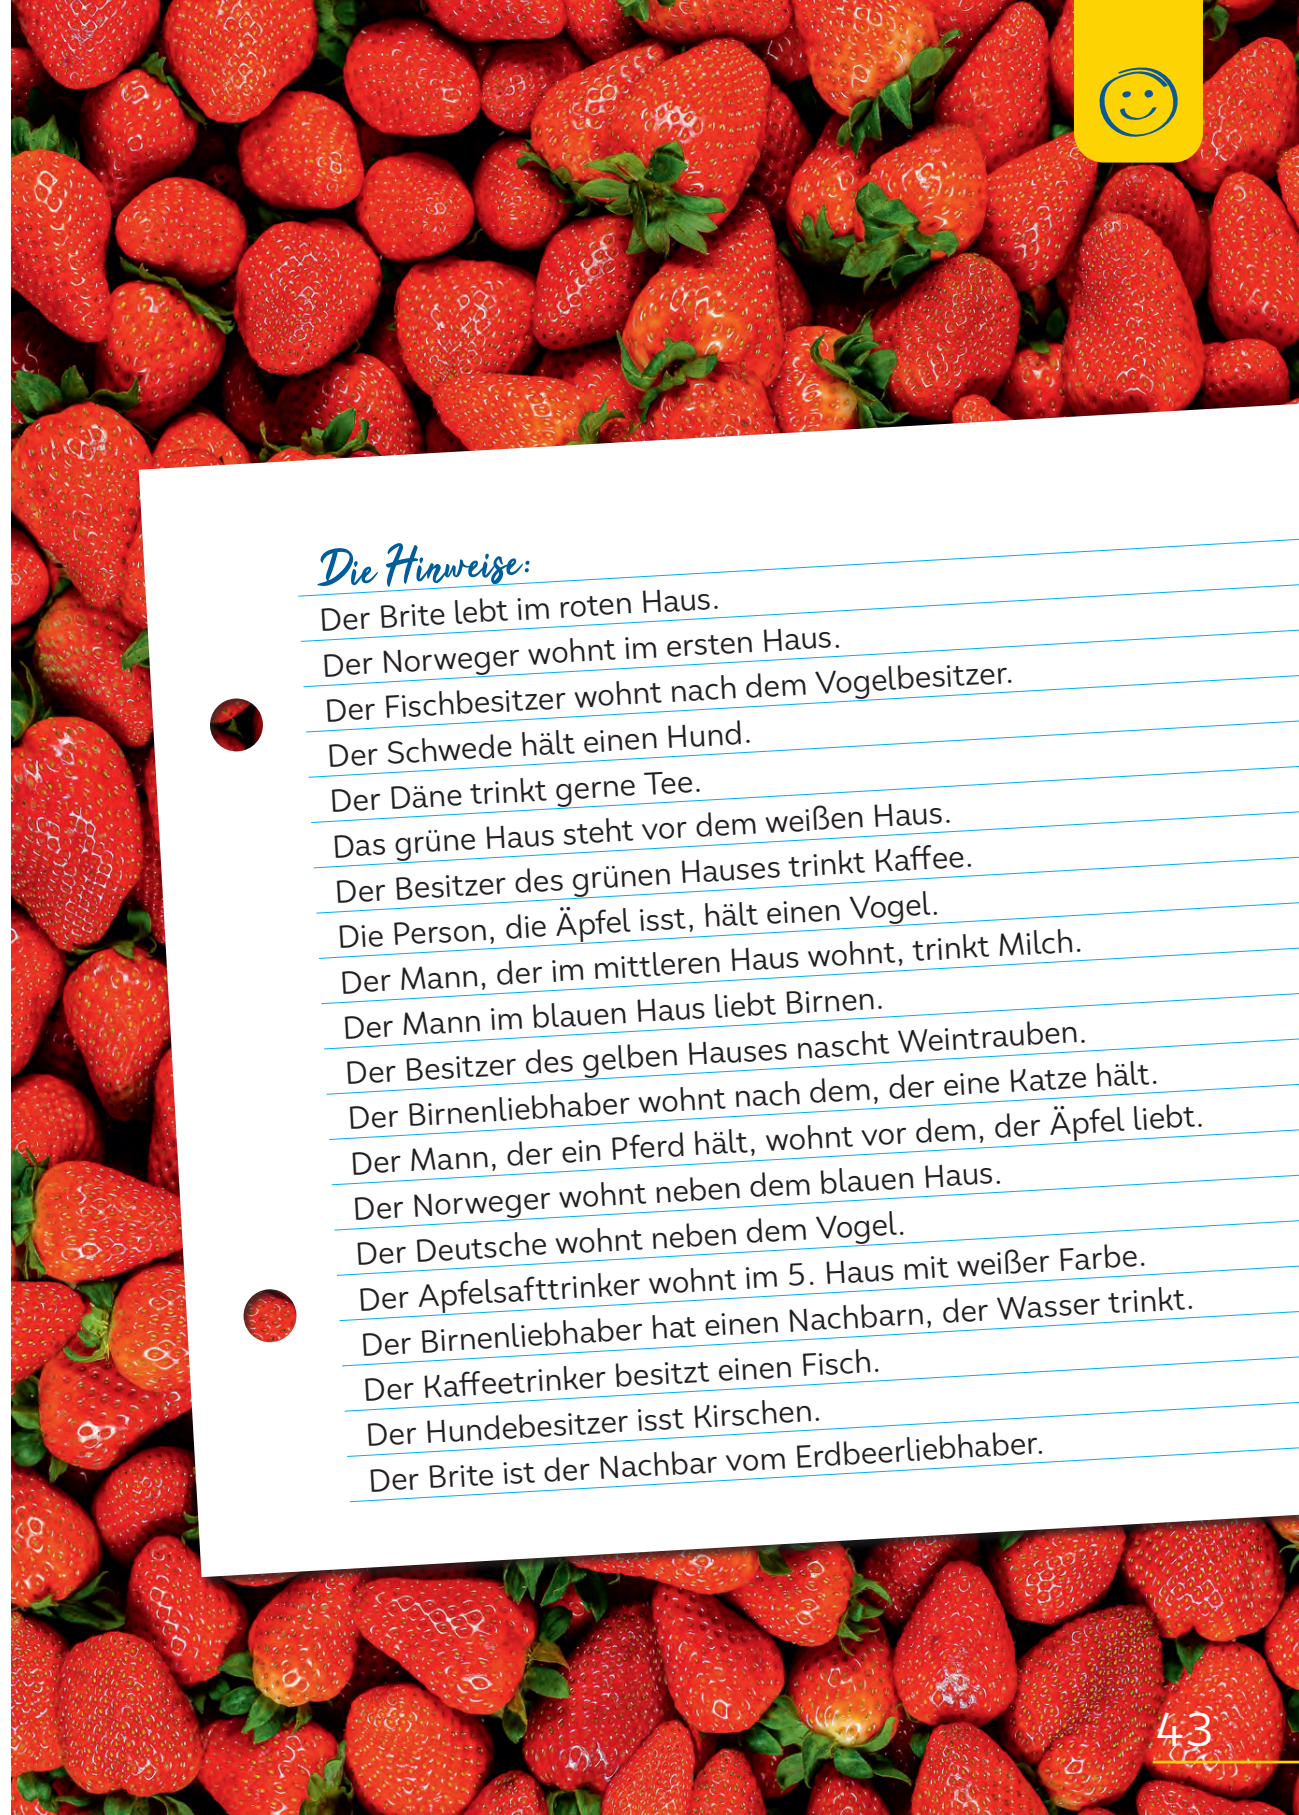 Die Hinweise:
Der Brite lebt im roten Haus.
Der Norweger wohnt im ersten Haus.
Der Fischbesitzer wohnt nach dem Vogelbesitzer.
Der Schwede hält einen Hund.
Der Däne trinkt gerne Tee.
Das grüne Haus steht vor dem weißen Haus.
Der Besitzer des grünen Hauses trinkt Kaffee.
Die Person, die Äpfel isst, hält einen Vogel.
Der Mann, der im mittleren Haus wohnt, trinkt Milch.
Der Mann im blauen Haus liebt Birnen.
Der Besitzer des gelben Hauses nascht Weintrauben.
Der Birnenliebhaber wohnt nach dem, der eine Katze hält.
Der Mann, der ein Pferd hält, wohnt vor dem, der Äpfel liebt.
Der Norweger wohnt neben dem blauen Haus.
Der Deutsche wohnt neben dem Vogel.
Der Apfelsafttrinker wohnt im 5. Haus mit weißer Farbe.
Der Birnenliebhaber hat einen Nachbarn, der Wasser trinkt.
Der Kaffeetrinker besitzt einen Fisch.
Der Hundebesitzer isst Kirschen.
Der Brite ist der Nachbar vom Erdbeerliebhaber.
43